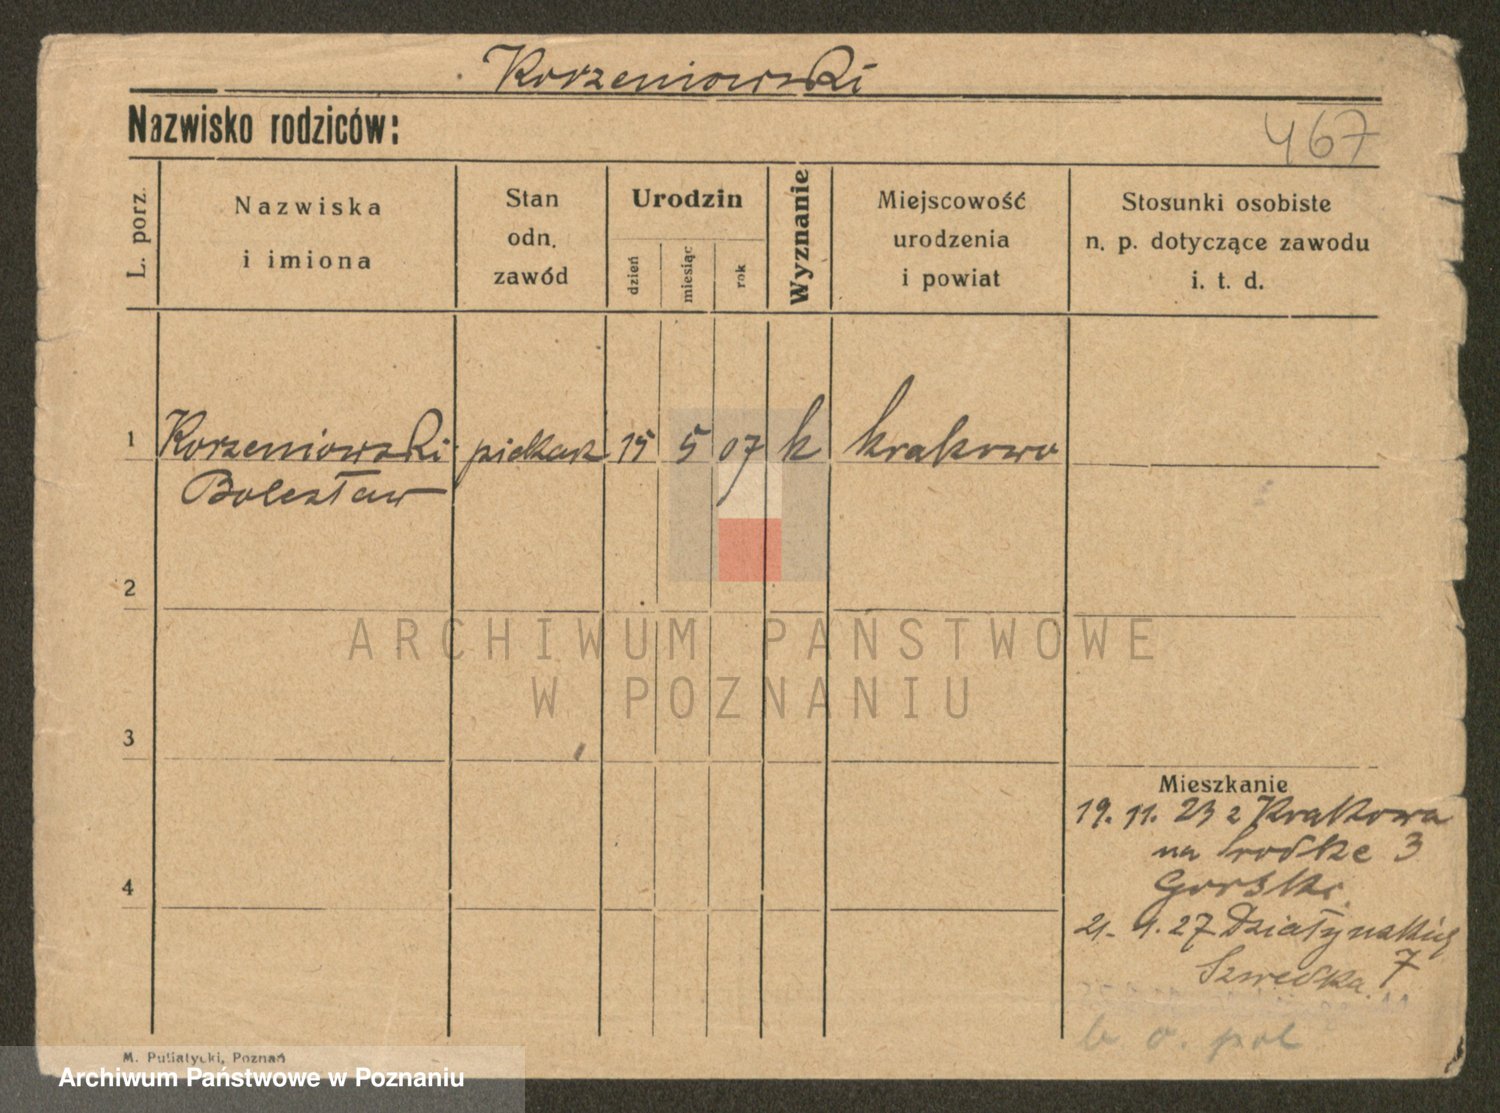 Korzeniowski
Nazwisko rodziców:
467
L. porz.
Nazwiska
i imiona
Stan
odn.
zawód
Urodzin
dzień
miesiąc
rok
Wyznanie
Miejscowość
urodzenia
i powiat
Stosunki osobiste
n. p. dotyczące zawodu
i. t. d.
1 Korzeniowski piekarz 15 5 07 k Krakowo
Bolesław
2
ARCHIWUM PAŃSTWOWE
W POZNANIU
3
Mieszkanie
19. 11. 23 z Krakowa
na Srodke 3
4
21. 1. 27 Działyńskich
7
b. o. pol
M. Putiatycki, Poznań
Archiwum Państwowe w Poznaniu